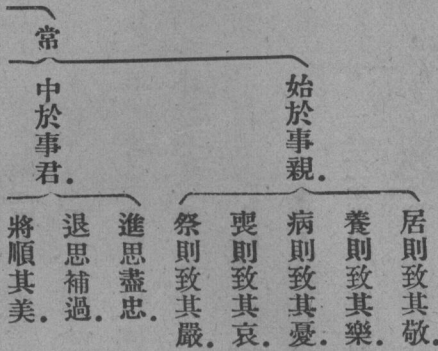 常
始於事親．
居則致其敬．
養則致其樂．
病則致其憂．
喪則致其哀．
祭則致其嚴．
中於事君．
進思盡忠．
退思補過．
將順其美．